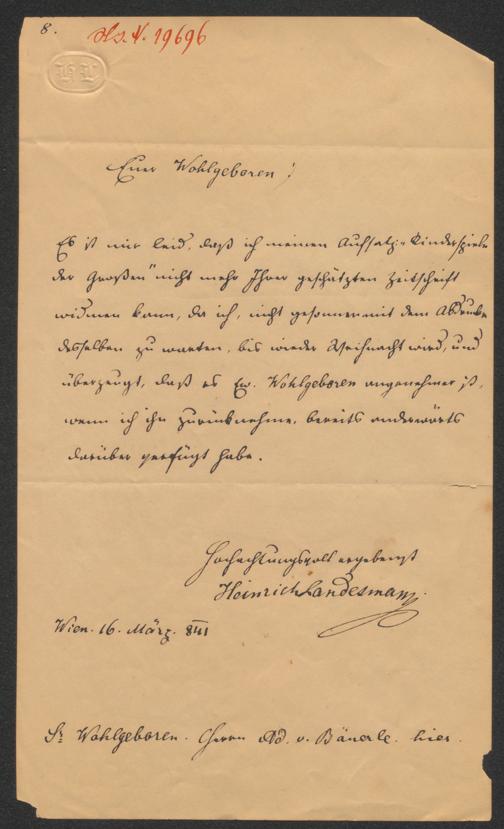 8.
Hs. N. 19696
HL
Euer Wohlgeboren!
Es ist mir leid, daß ich meinen Aufsatz „Kinderspiele
der Großen" nicht mehr Ihrer geschätzten Zeitschrift
widmen kann, da ich, nicht gesonnen mit dem Abdrucke
desselben zu warten, bis wieder Weihnacht wird, und
überzeugt, daß es Ew. Wohlgeboren angenehmer ist,
wenn ich ihn zurücknehme, bereits anderwärts
darüber verfügt habe.
Hochachtungsvoll ergebenst
Heinrich Landesmann.
Wien. 16. März. 841
Sr Wohlgeboren. Herrn Ad. v. Bäuerle. hier.